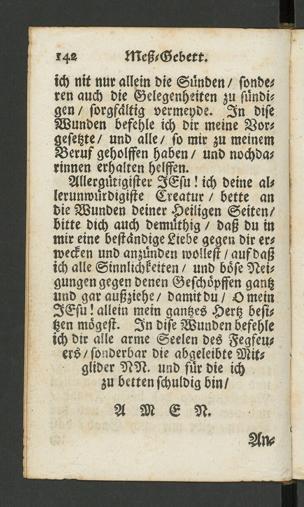 142 Meß-Gebett.
ich nit nur allein die Sünden / sonde-
ren auch die Gelegenheiten zu sündi-
gen / sorgfältig vermeyde. In dise
Wunden befehle ich dir meine Vor-
gesetzte / und alle / so mir zu meinem
Beruf geholffen haben / und nochda-
rinnen erhalten helffen.
Allergütigister JEsu ! ich deine al-
lerunwürdigiste Creatur / bette an
die Wunden deiner Heiligen Seiten /
bitte dich auch demüthig / daß du in
mir eine beständige Liebe gegen dir er-
wecken und anzünden wollest / auf daß
ich alle Sinnlichkeiten / und böse Nei-
gungen gegen denen Geschöpffen gantz
und gar außziehe / damit du / O mein
JEsu ! allein mein gantzes Hertz besi-
tzen mögest. In dise Wunden befehle
ich dir alle arme Seelen des Fegfeu-
ers / sonderbar die abgeleibte Mit-
glider NN. und für die ich
zu betten schuldig bin /
A M E N.
An-